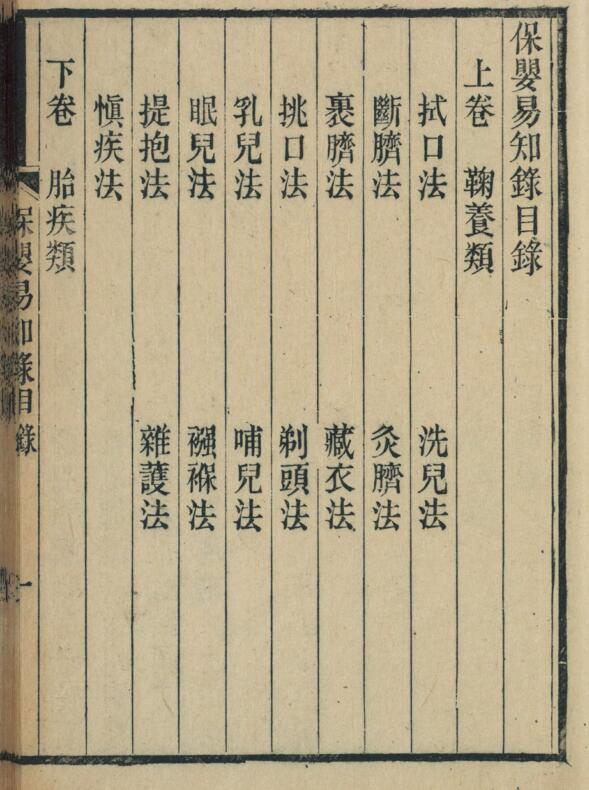 保嬰易知錄目錄
上卷 鞠養類
拭口法 洗兒法
斷臍法 灸臍法
裹臍法 藏衣法
挑口法 剃頭法
乳兒法 哺兒法
眠兒法 襁褓法
提抱法 雜護法
慎疾法
下卷 胎疾類
保嬰易知錄目錄 一